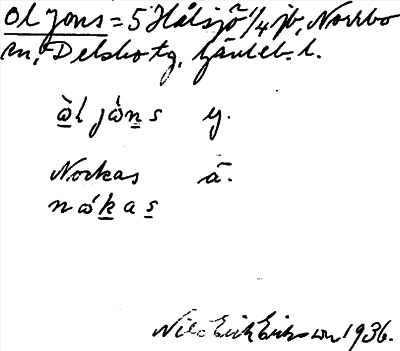 Ol Jons = 5 Hålsjö 1/4 jb, Norrbo
sn, Delsbo tg, Gävleb. l.
ò̱l jò̱n̲s y.
Norkas ä.
nó̱k̲as̲
Nils Erik Eriksson 1936.